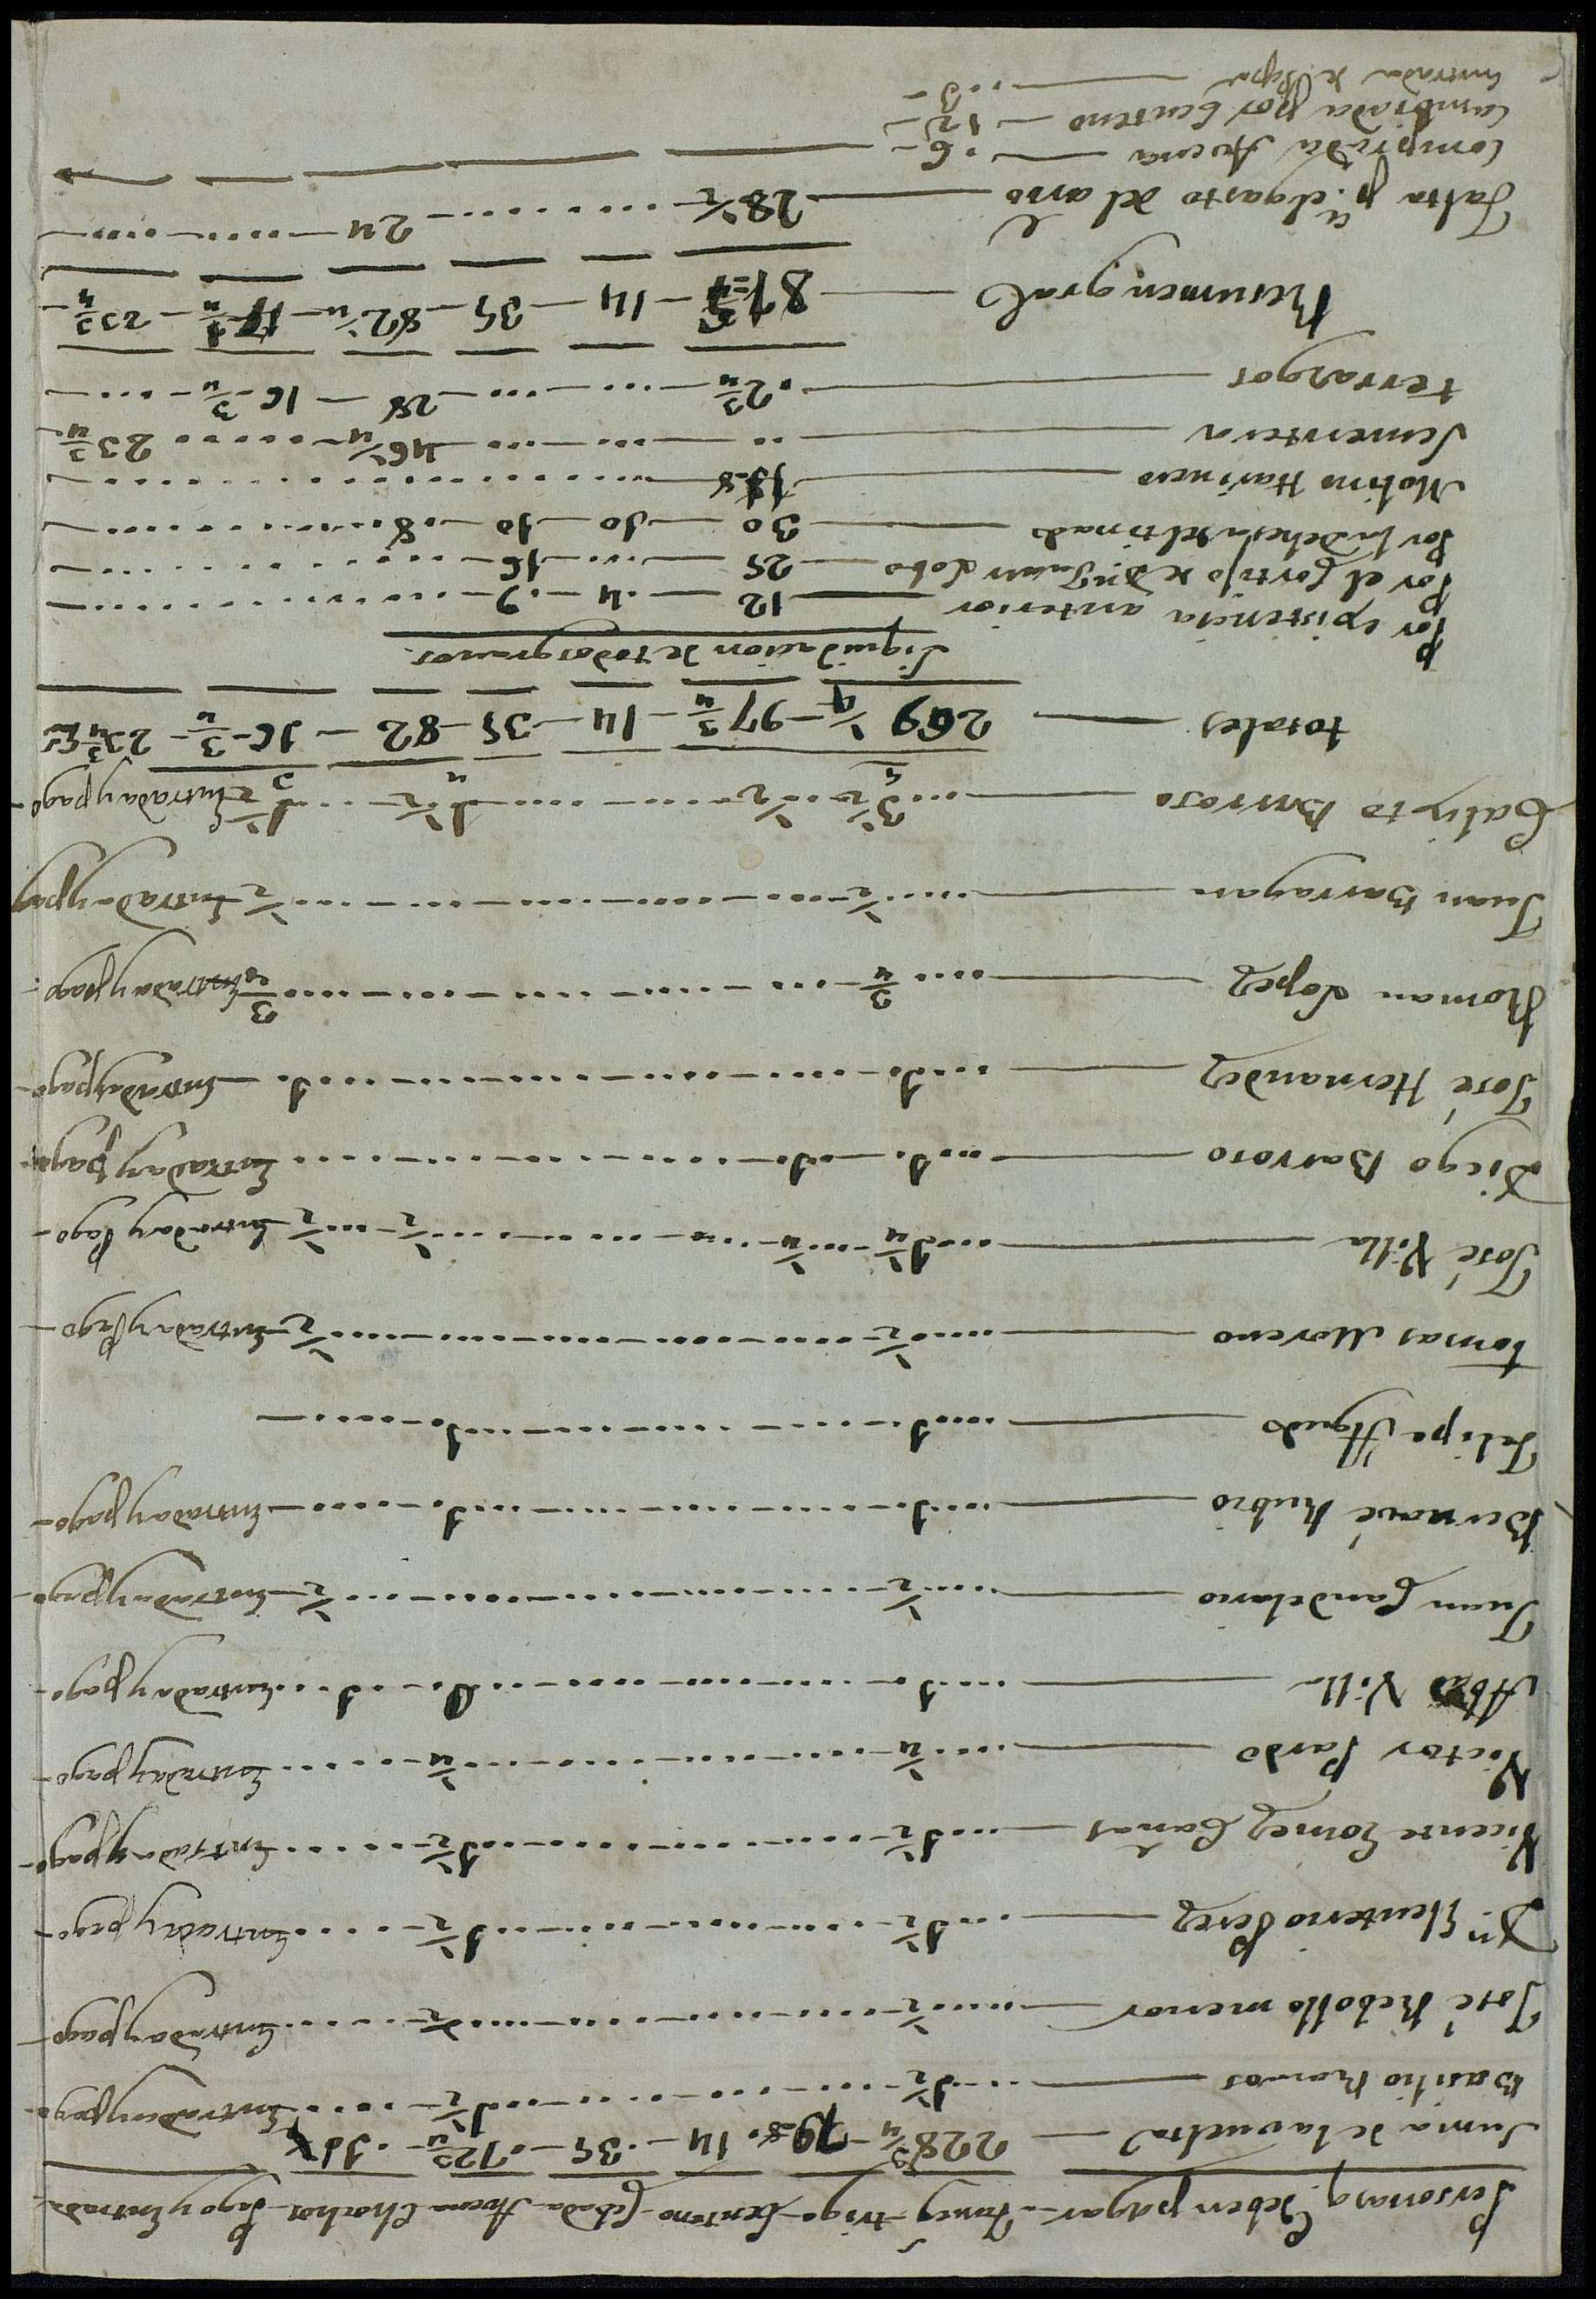 Personas q. deben pagar - Faneg.s - trigo - Centeno - Cebada - Avena - Chochos - Pago y Entrada.
Suma de la vuelta - 228 3/4 - 79 - 14 - 35 - 72
Basilio Ramos - 1 1/2 - 1 1/2 - Entrada y pago
José Rebollo menor - 1/2 - 1/2 - Entrada y pago
Dn. Eleuterio Perez - 1 1/2 - 1 1/2 - Entrada y pago
Vicente Gomez Cañas - 1 1/2 - 1 1/2 - Entrada y pago
Victor Pardo - 1/4 - 1/4 - Entrada y pago
Villa - 1 - 1 - Entrada y pago
Juan Candelario - 1/2 - 1/2 - Entrada y pago
Bernavé Rubio - 1 - 1 - Entrada y pago
Felipe Agudo - 1 - 1
Tomas Moreno - 1/2 - 1/2 - Entrada y Pago
José Villa - 1 1/4 - 1/4 - 1/2 - 1/2 - Entrada y Pago
Diego Barroso - 1 - 1 - Entrada y pago
José Hernandez - 1 - 1 - Entrada y pago
Roman Lopez - 3/4 - 3 - Entrada y pago
Juan Barragan - 1/2 - 1/2 - Entrada y pago
Calixto Barroso - 3 1/2 - 1/2 - 1 1/2 - 1 1/2 - Entrada y pago
totales - 269 1/4 - 97 3/4 - 14 - 35 - 82 - 16 3/4 - 23 3/4
Liquidacion de todos granos.
Por existencia anterior - 12 - 4 - 9
Por el Cortijo de Dn. Lobo - 25 - 16
Por la dehesa - 30 - 10 - 10 - 8
Molino Harinero - 18
Sementera - 46 1/4 - 23 3/4
terrazgos - 2 3/4 - 28 - 16 3/4
Resumen gral - 87 - 14 - 35 - 82 1/4 - 17 - 23 3/4
Falta pa. el gasto del año - 28 1/2 - 24
Comprada Avena - 6
Cambiada por Centeno - 12
Entrada de - 3